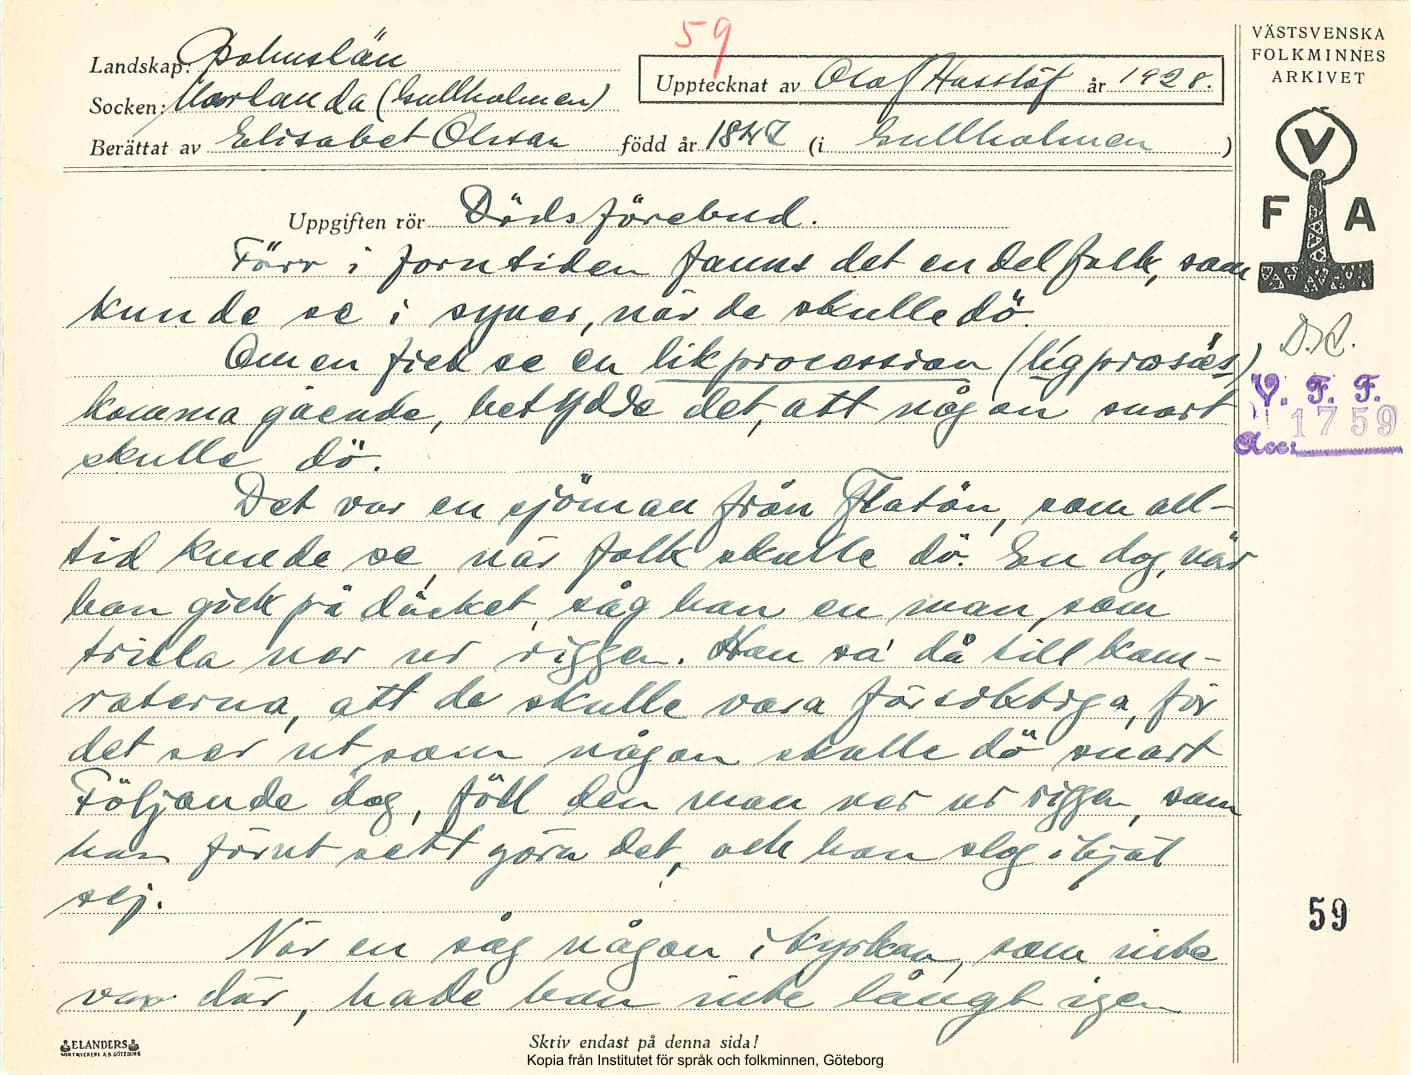 59
Landskap: Bohuslän
Upptecknat av Olof Hasslöf år 1928.
Socken: Morlanda (Gullholmen)
Berättat av Elisabet Olsson född år 1847 (i Gullholmen)
VÄSTSVENSKA
FOLKMINNES
ARKIVET
V
F A
Uppgiften rör Dödsförebud.
Förr i forntiden fanns det en del folk, som
kunde se i syner, när de skulle dö.
Om en fick se en likprocession (ligprosäs)
komma gående, betydde det, att någon snart
skulle dö.
Det var en sjöman från Flatön, som all-
tid kunde se, när folk skulle dö. En dag, när
han gick på däcket, såg han en man, som
trilla ner ur riggen. Han sa' då till kam-
raterna, att de skulle vara försiktiga, för
det ser ut som någon skulle dö snart
Följande dag, föll den man ner ur riggen, som
han förut sett göra det, och han slog ihjäl
sej.
När en såg någon i kyrkan, som inte
var där, hade han inte långt igen
V. F. F.
1759
Acc:
59
ELANDERS
Skriv endast på denna sida!
Kopia från Institutet för språk och folkminnen, Göteborg